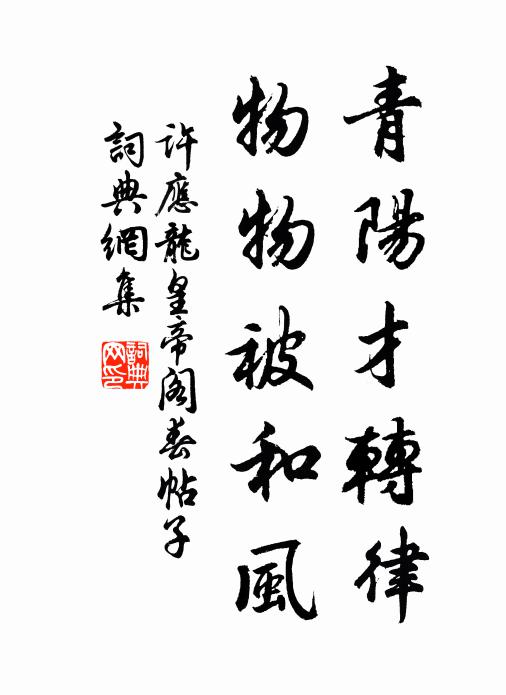 青陽才轉律
物物被和風
許應龍皇帝閣春帖子
詞典網集
詞典網印